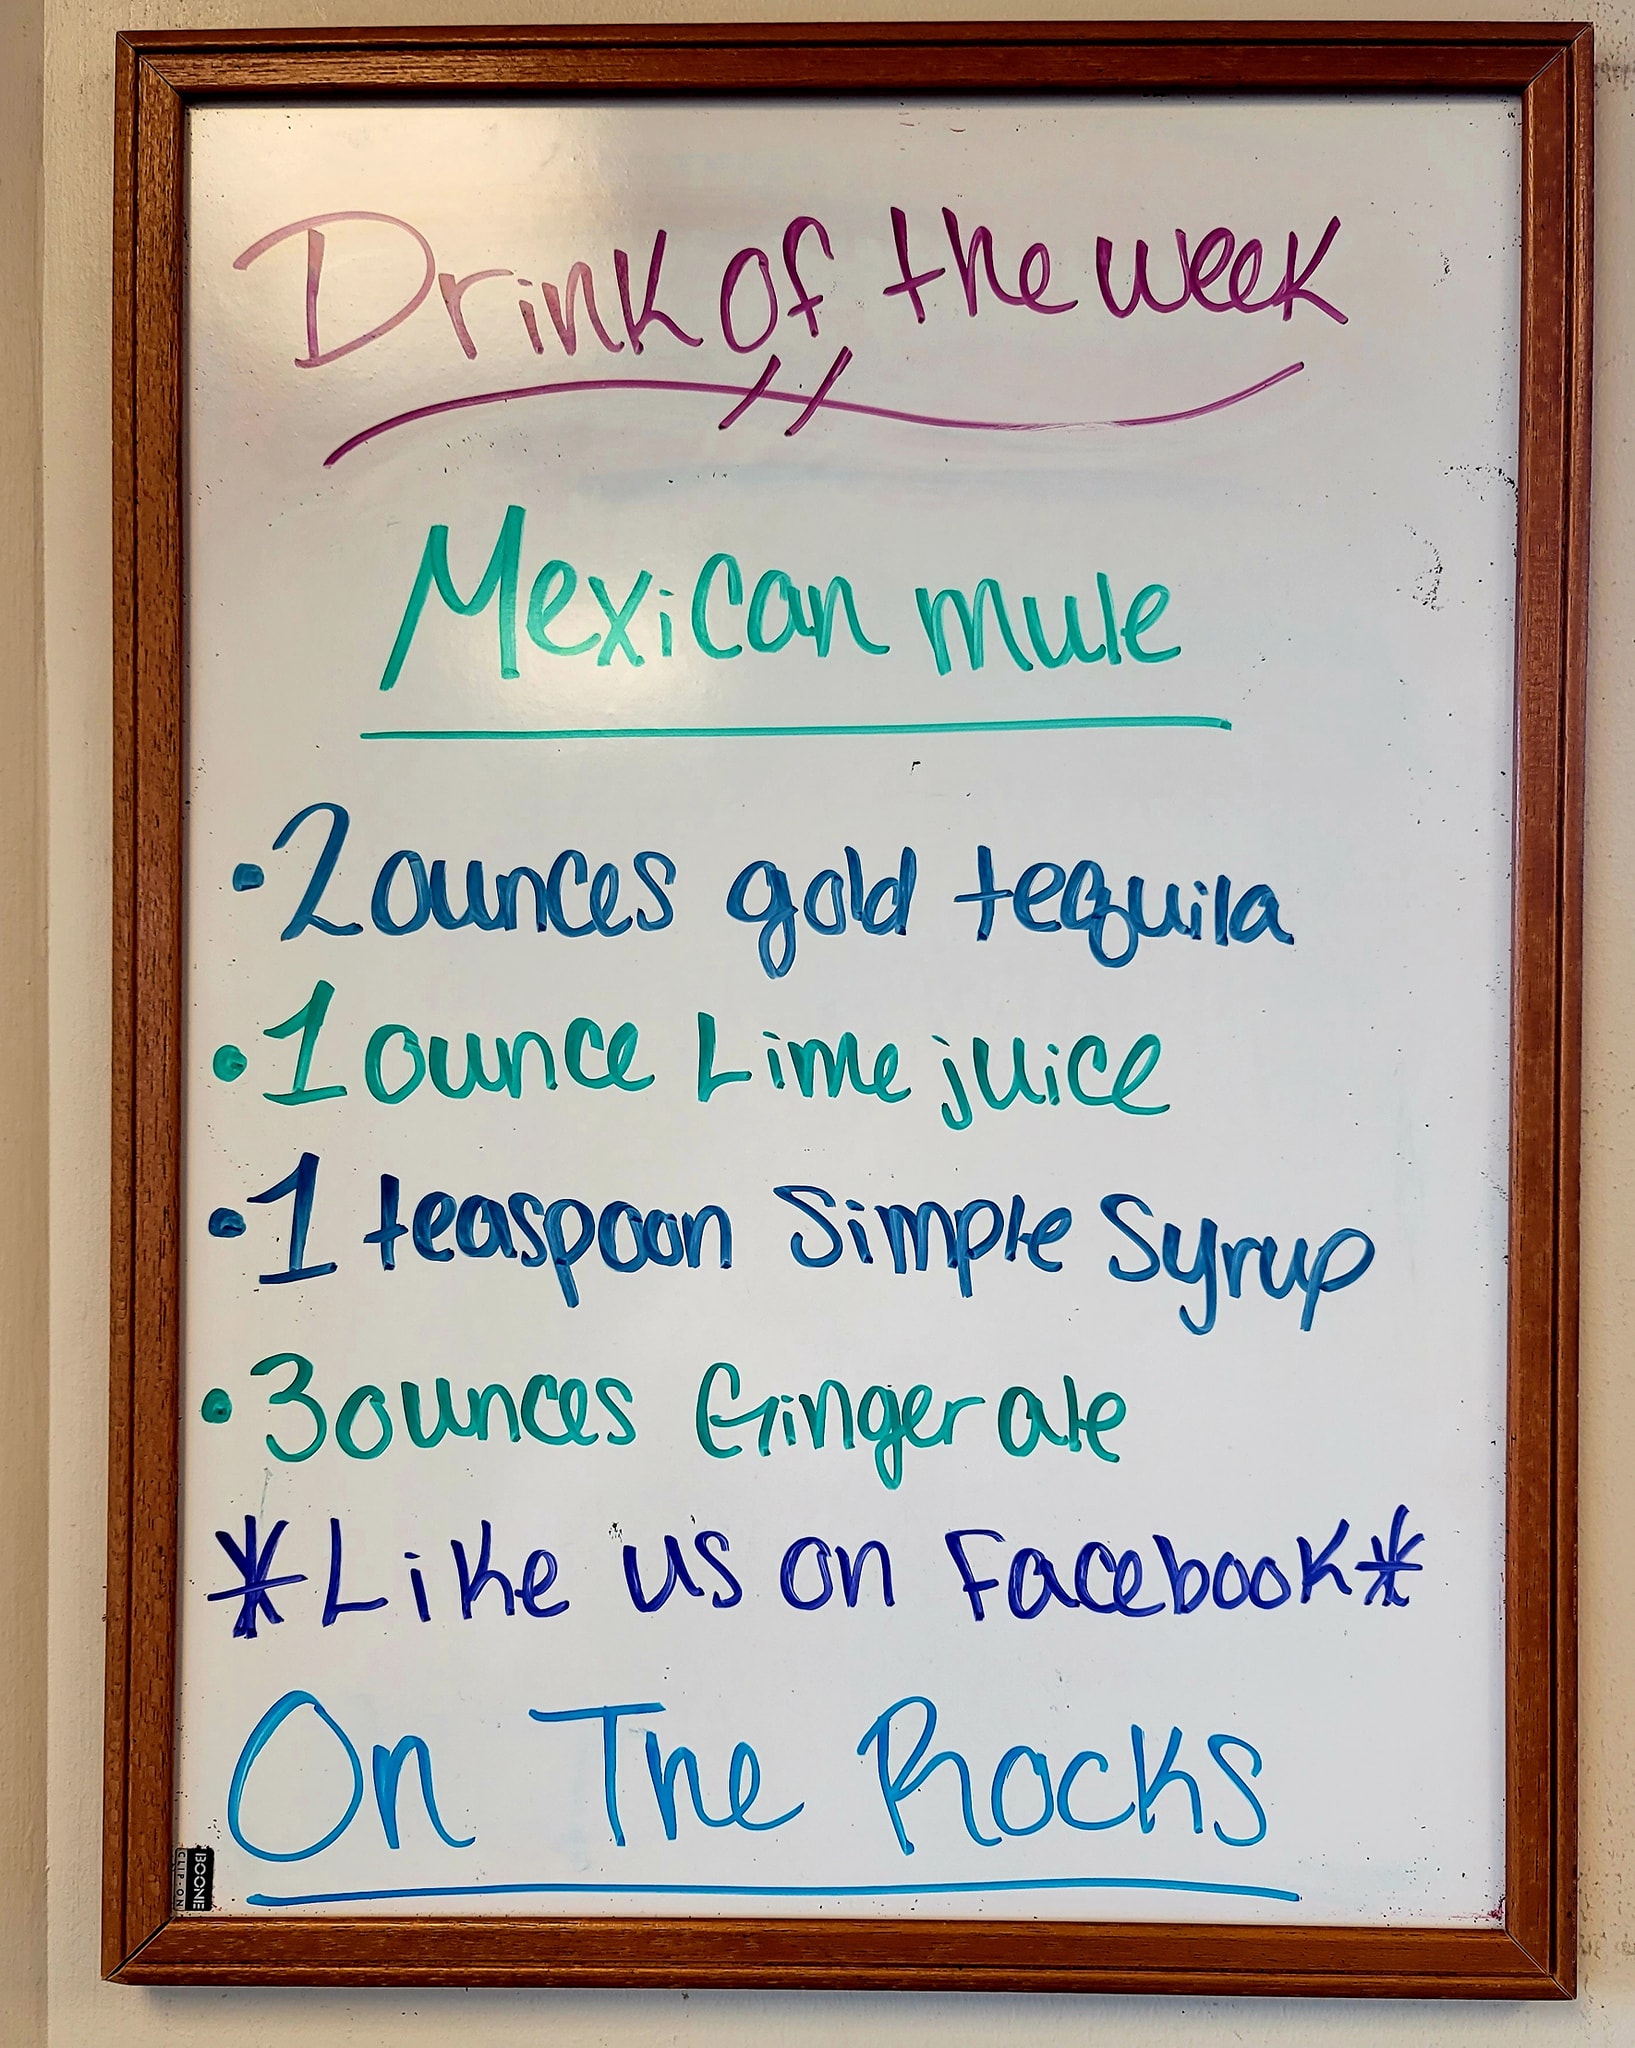 Drink of the week
Mexican mule
• 2 ounces gold tequila
• 1 ounce Lime juice
• 1 teaspoon Simple Syrup
• 3 ounces Ginger ale
*Like us on Facebook*
On The Rocks
BOONE
CLIP-ON